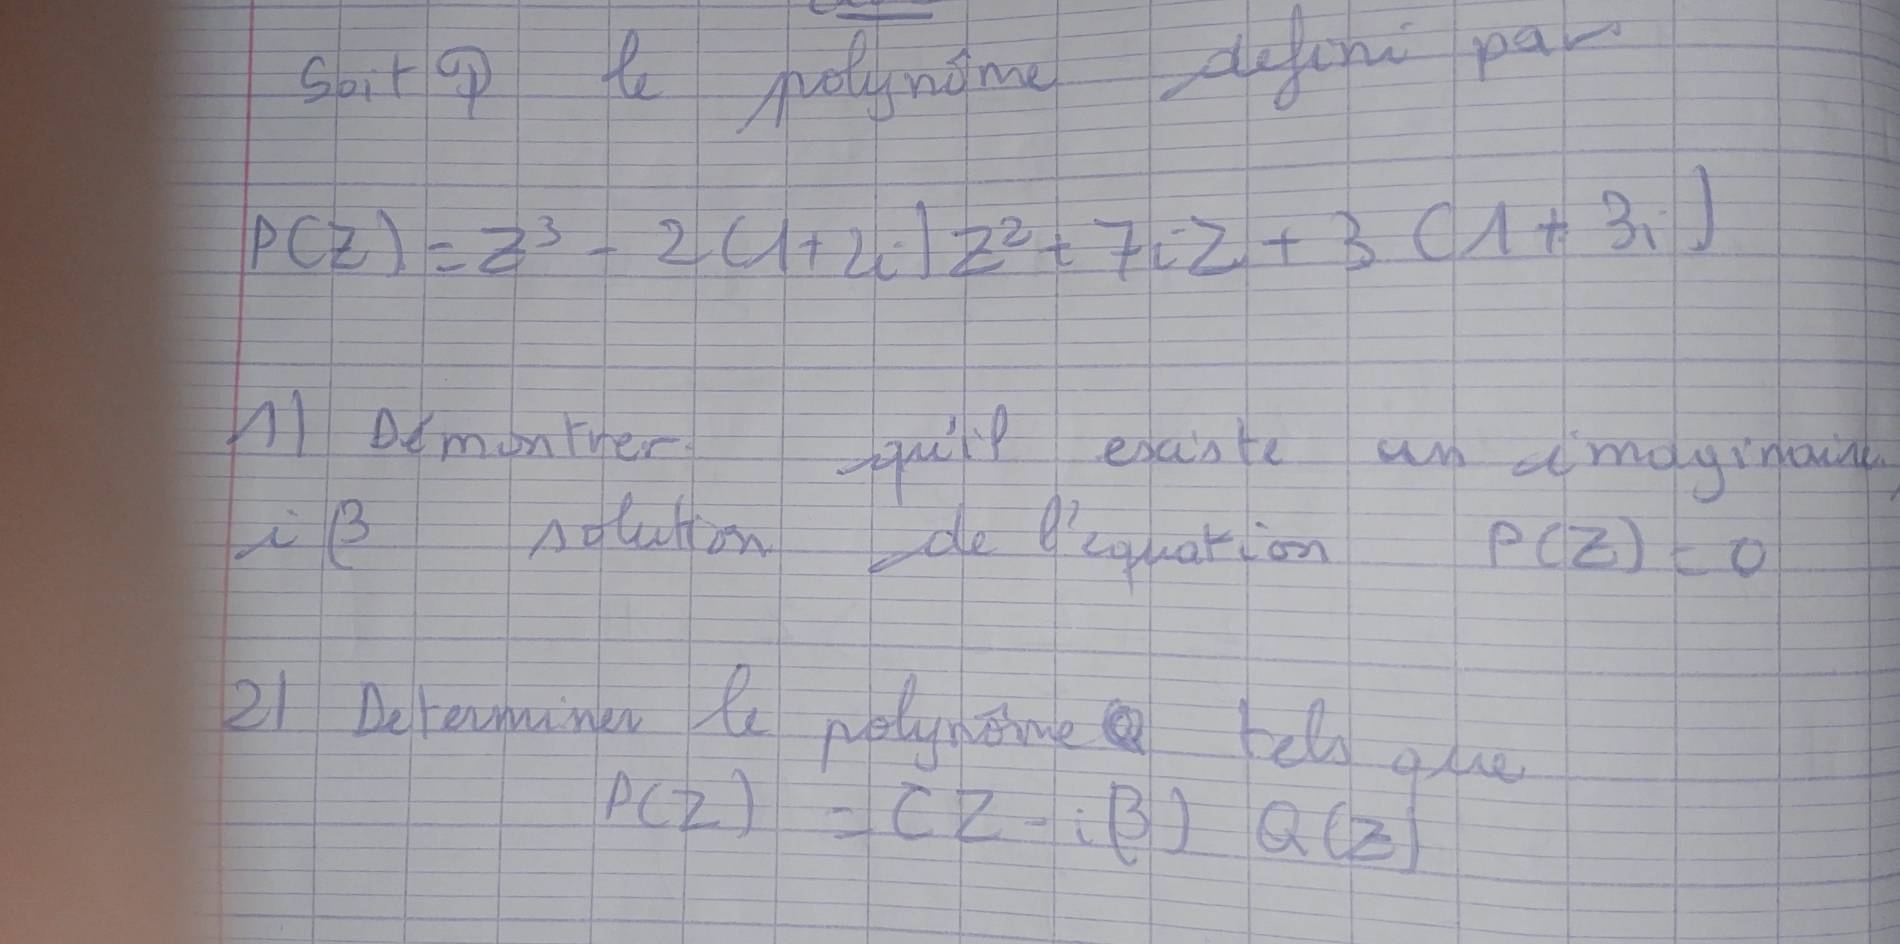 Soit P le polynôme defini par
P(Z) = Z³ - 2(1+2i)Z² + 7iZ + 3(1+3i)
1) Démontrer qu'il existe un imaginaire
iβ solution de l'equation P(Z) = 0
2) Determiner le polynôme Q tels que
P(Z) = (Z - iβ) Q(Z)